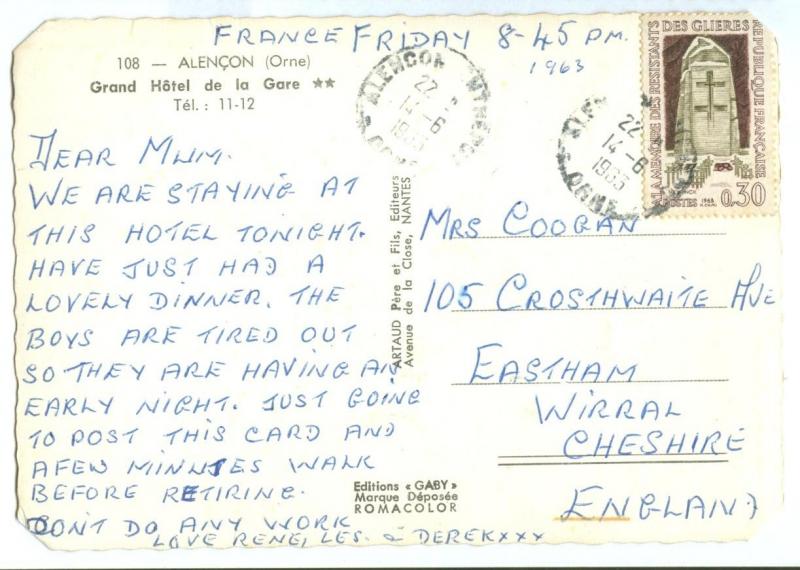 FRANCE FRIDAY 8-45 PM.
1963
108 — ALENÇON (Orne)
Grand Hôtel de la Gare ★★
Tél. : 11-12
DEAR MUM.
WE ARE STAYING AT
THIS HOTEL TONIGHT.
HAVE JUST HAD A
LOVELY DINNER. THE
BOYS ARE TIRED OUT
SO THEY ARE HAVING AN
EARLY NIGHT. JUST GOING
TO POST THIS CARD AND
A FEW MINUTES WALK
BEFORE RETIRING.
DONT DO ANY WORK
LOVE RENE, LES. & DEREK XXX
ARTAUD Père et Fils, Editeurs
Avenue de la Close, NANTES
Editions « GABY »
Marque Déposée
ROMACOLOR
ALENCON
22
14-6
1963
ORNE
22
14-6
1963
ORNE
A LA MEMOIRE DES RESISTANTS DES GLIERES
REPUBLIQUE FRANÇAISE
POSTES 1963
0,30
MRS COOGAN
105 CROSTHWAITE AVE
EASTHAM
WIRRAL
CHESHIRE
ENGLAND